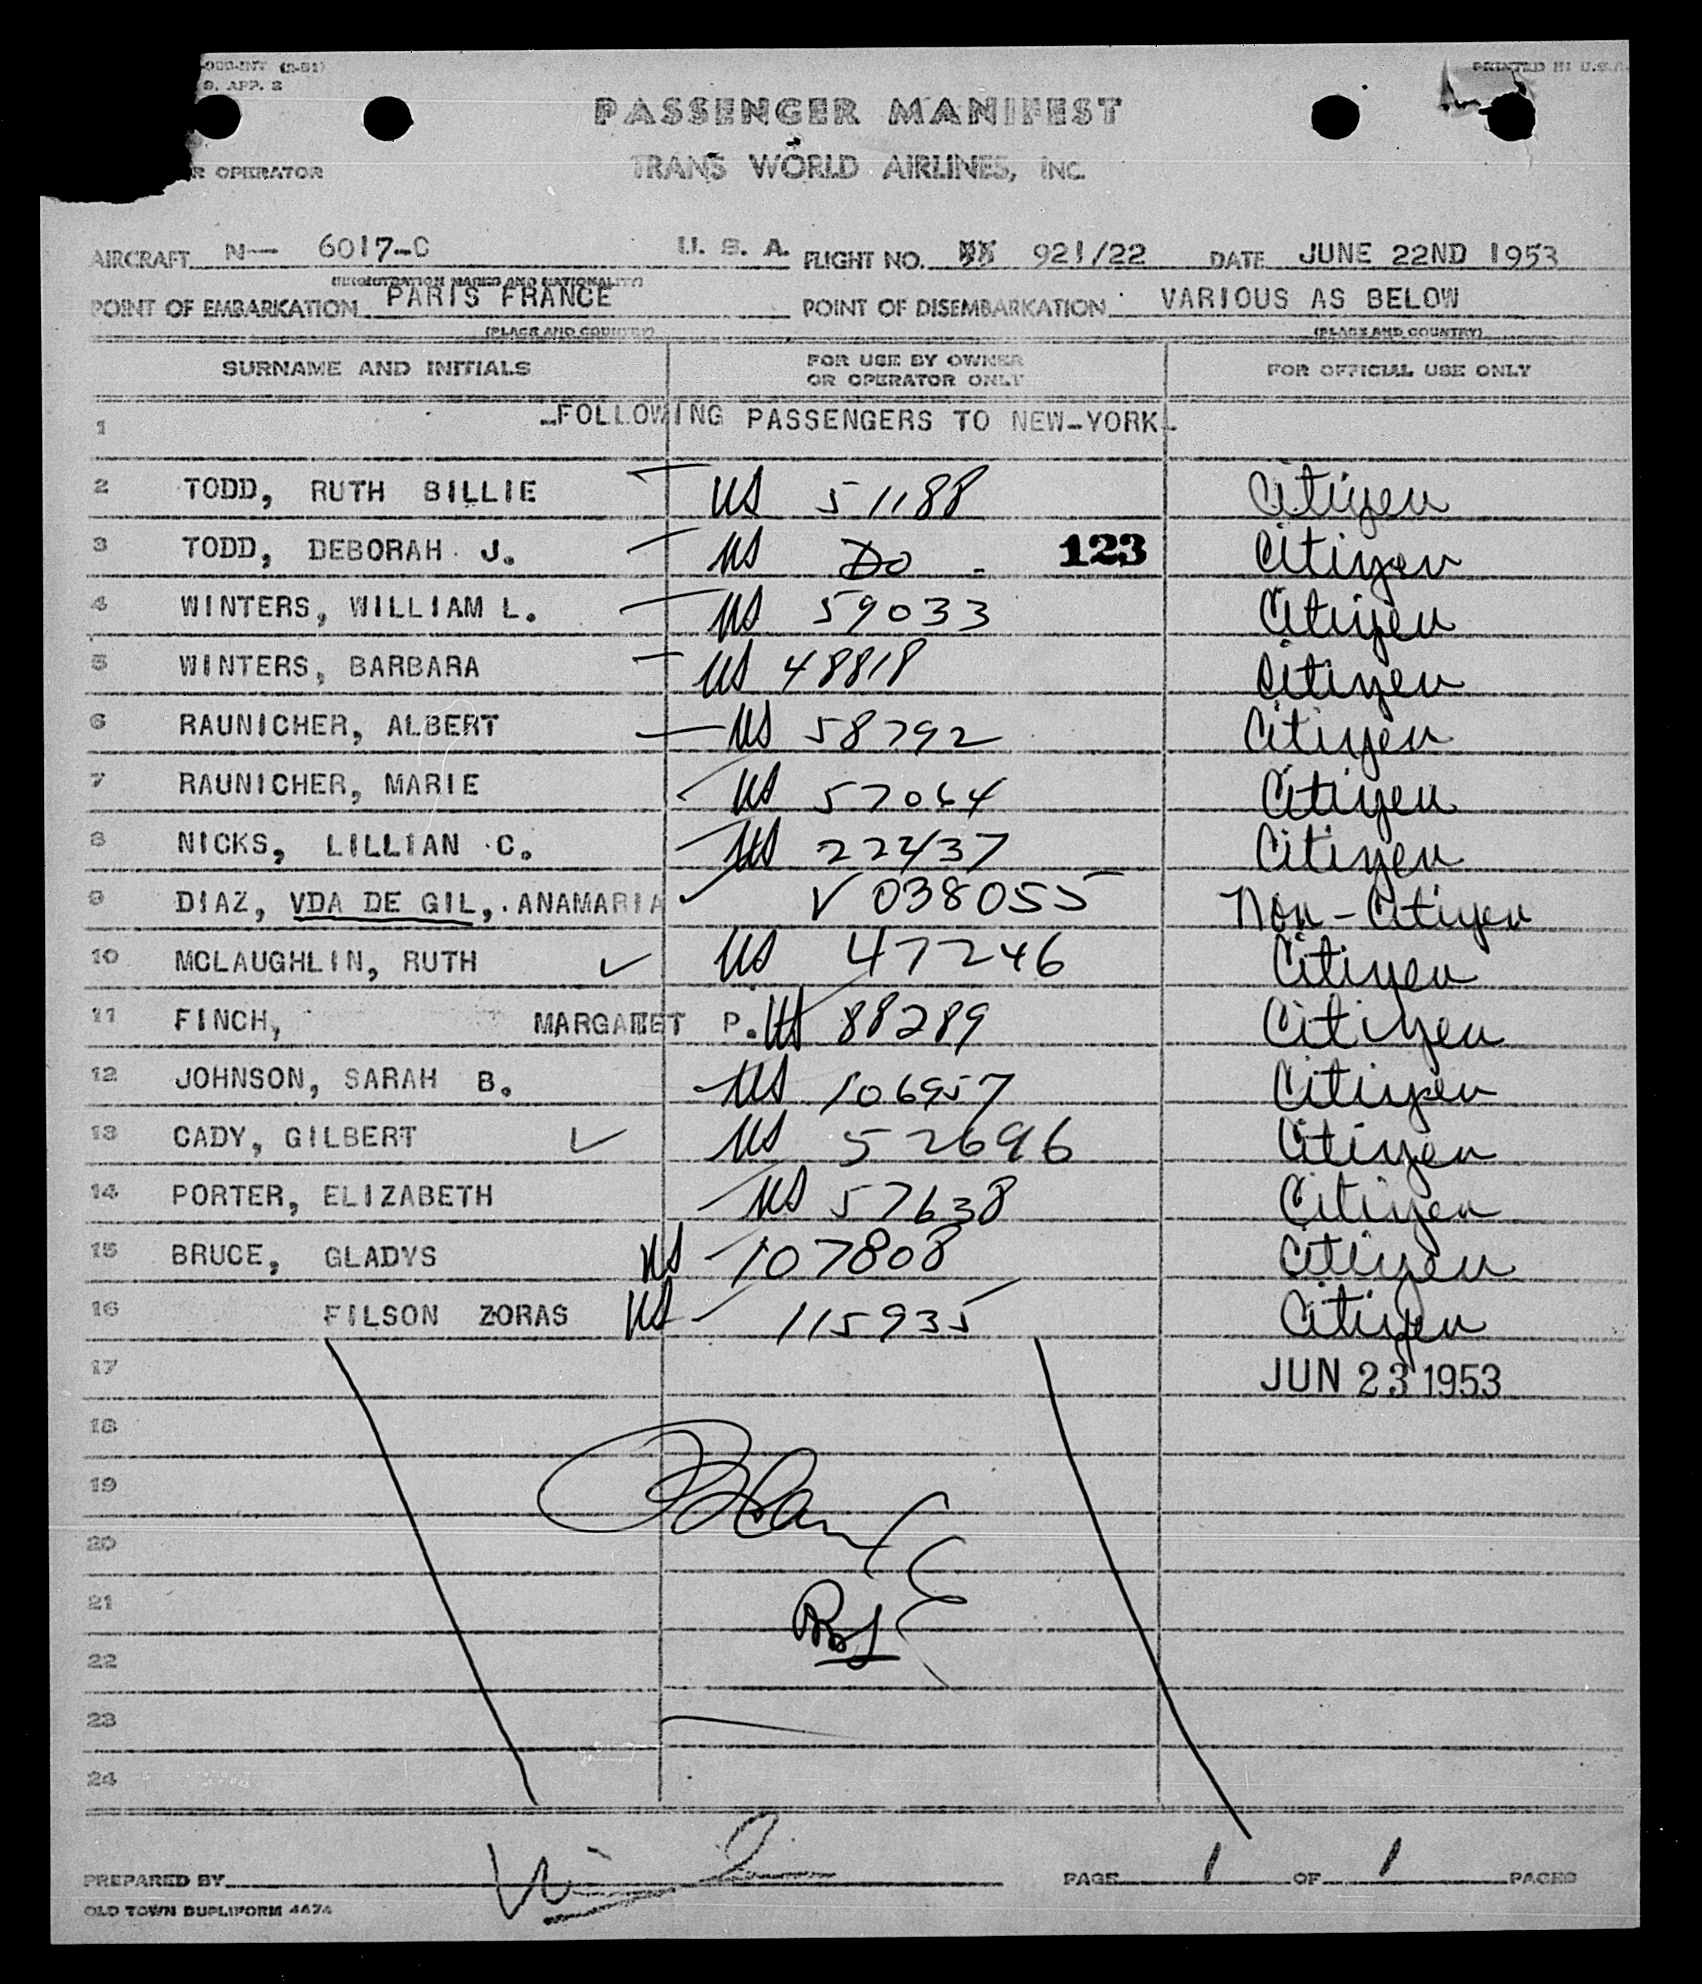 (2-51)
9. APP. 2
PRINTED IN U.S.A.
PASSENGER MANIFEST
OPERATOR
TRANS WORLD AIRLINES, INC.
AIRCRAFT N— 6017-C U. S. A. FLIGHT NO. 921/22 DATE JUNE 22ND 1953
(REGISTRATION MARKS AND NATIONALITY)
POINT OF EMBARKATION PARIS FRANCE POINT OF DISEMBARKATION VARIOUS AS BELOW
(PLACE AND COUNTRY) (PLACE AND COUNTRY)
SURNAME AND INITIALS FOR USE BY OWNER OR OPERATOR ONLY FOR OFFICIAL USE ONLY
1 _FOLLOWING PASSENGERS TO NEW-YORK_
2 TODD, RUTH BILLIE US 51188 Citizen
3 TODD, DEBORAH J. US Do 123 Citizen
4 WINTERS, WILLIAM L. US 59033 Citizen
5 WINTERS, BARBARA US 48818 Citizen
6 RAUNICHER, ALBERT US 58792 Citizen
7 RAUNICHER, MARIE US 57064 Citizen
8 NICKS, LILLIAN C. US 222437 Citizen
9 DIAZ, VDA DE GIL, ANAMARIA V 038055 Non-Citizen
10 MCLAUGHLIN, RUTH US 47246 Citizen
11 FINCH, MARGARET P. US 88289 Citizen
12 JOHNSON, SARAH B. US 106957 Citizen
13 CADY, GILBERT US 52696 Citizen
14 PORTER, ELIZABETH US 57638 Citizen
15 BRUCE, GLADYS US 107808 Citizen
16 FILSON ZORAS US 115935 Citizen
17 JUN 23 1953
18
19
20
21
22
23
24
PREPARED BY PAGE 1 OF 1 PAGES
OLD TOWN DUPLIFORM 4474